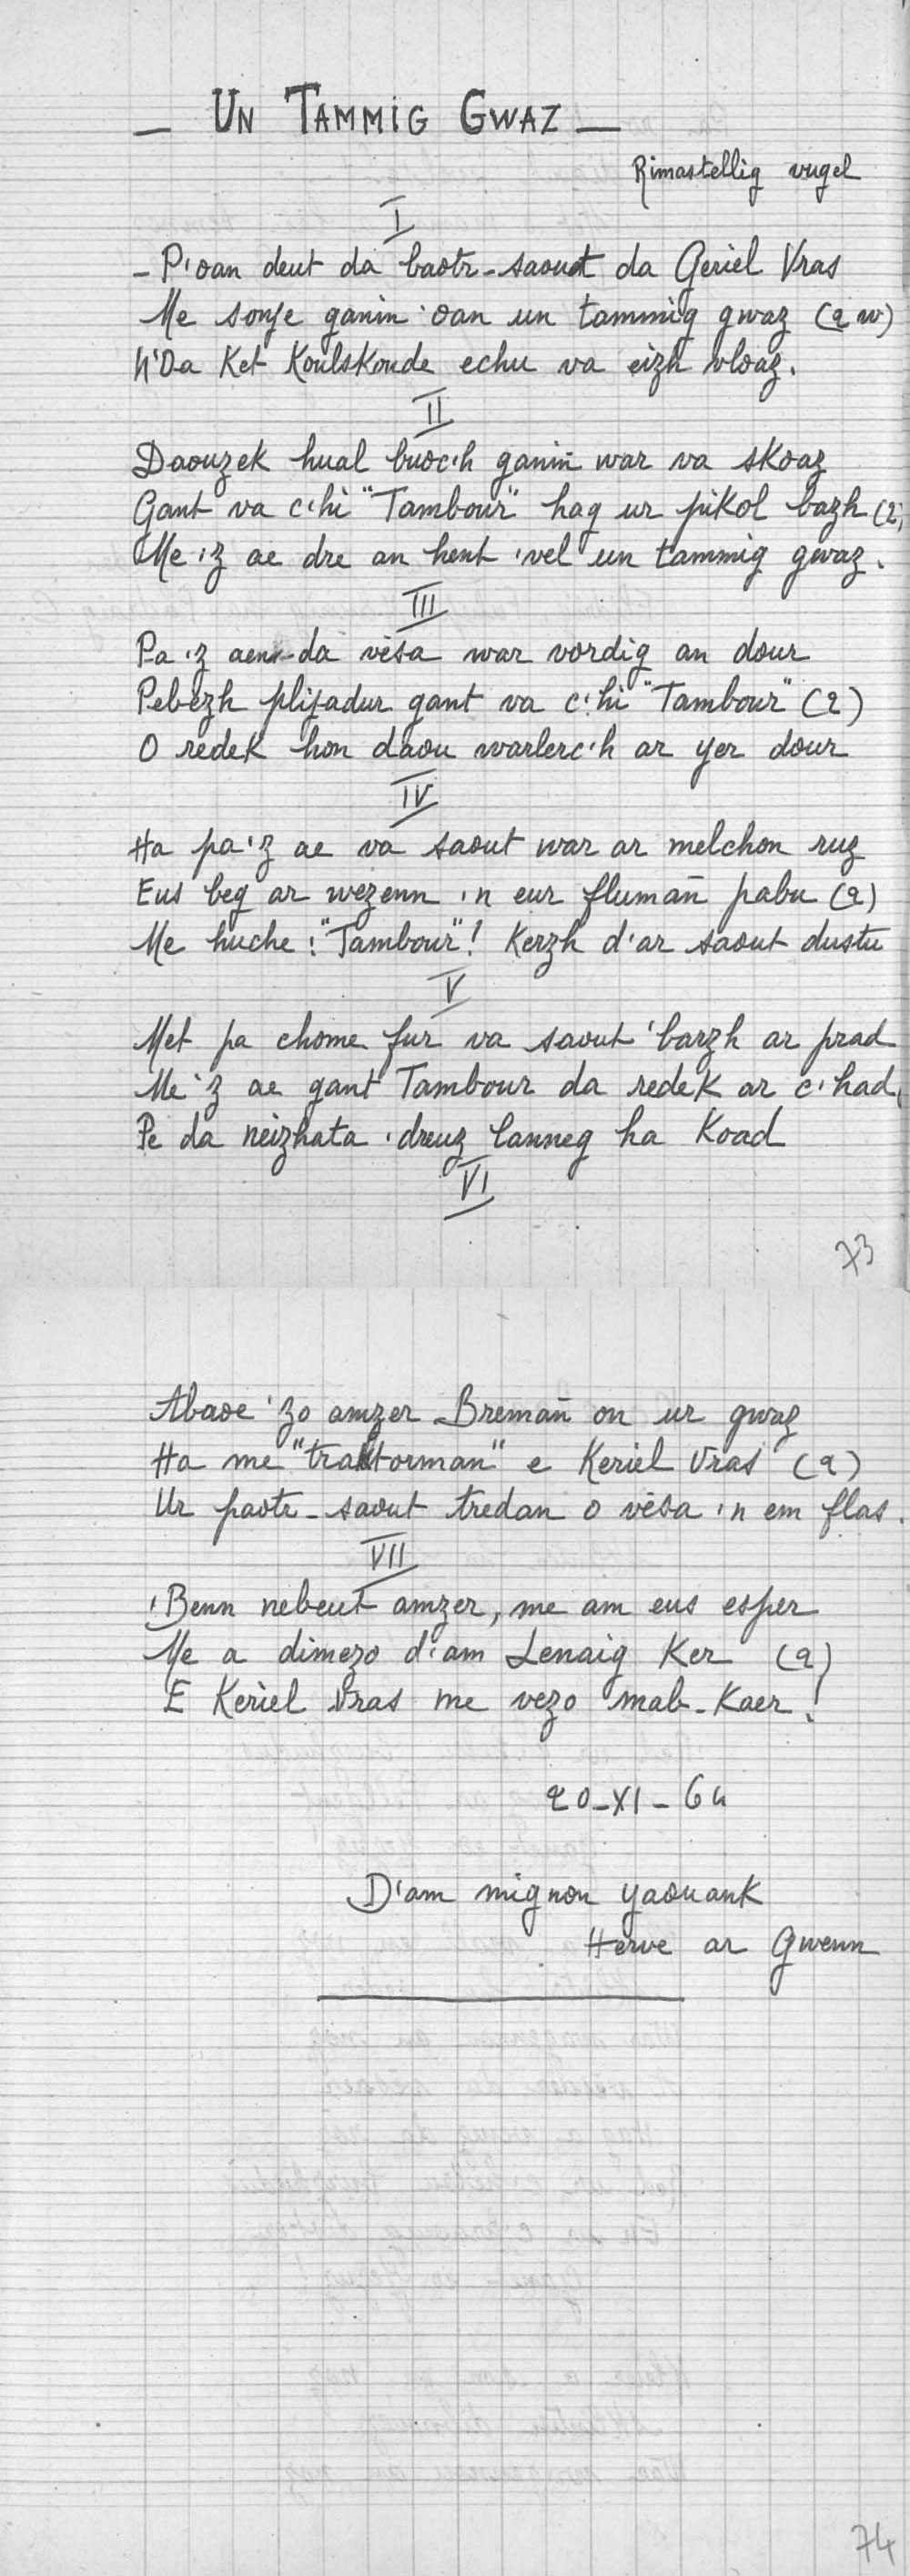 — UN TAMMIG GWAZ —
Rimastellig vugel
I
– P'oan deut da baotr-saout da Geriel Vras
Me sonje ganin 'oan un tammig gwaz (2 w)
N'Oa Ket Koulskoude echu va eizh vloaz.
II
Daouzek hual buoc'h ganin war va skoaz
Gant va c'hi "Tambour" hag ur pikol bazh (2)
Me 'z ae dre an hent 'vel un tammig gwaz.
III
Pa 'z aen da vesa war vordig an dour
Pebezh plijadur gant va c'hi "Tambour" (2)
O redek hon daou warlerc'h ar yer dour
IV
Ha pa'z ae va saout war ar melchon ruz
Eus beg ar wezenn 'n eur flumañ pabu (2)
Me huche : "Tambour"! Kerzh d'ar saout dustu
V
Met pa chome fur va saout 'barzh ar prad
Me 'z ae gant Tambour da redek ar c'had,
Pe da neizhata 'dreuz lanneg ha Koad
VI
73
Abaoe 'zo amzer Bremañ on ur gwaz
Ha me "traktorman" e Keriel Vras (2)
Ur paotr-saout tredan o vesa 'n em flas.
VII
'Benn nebeut amzer, me am eus esper
Me a dimezo d'am Lenaig Ker (2)
E Keriel Vras me vezo mab-Kaer!
20-XI-64
D'am mignon yaouank
Herve ar Gwenn
74